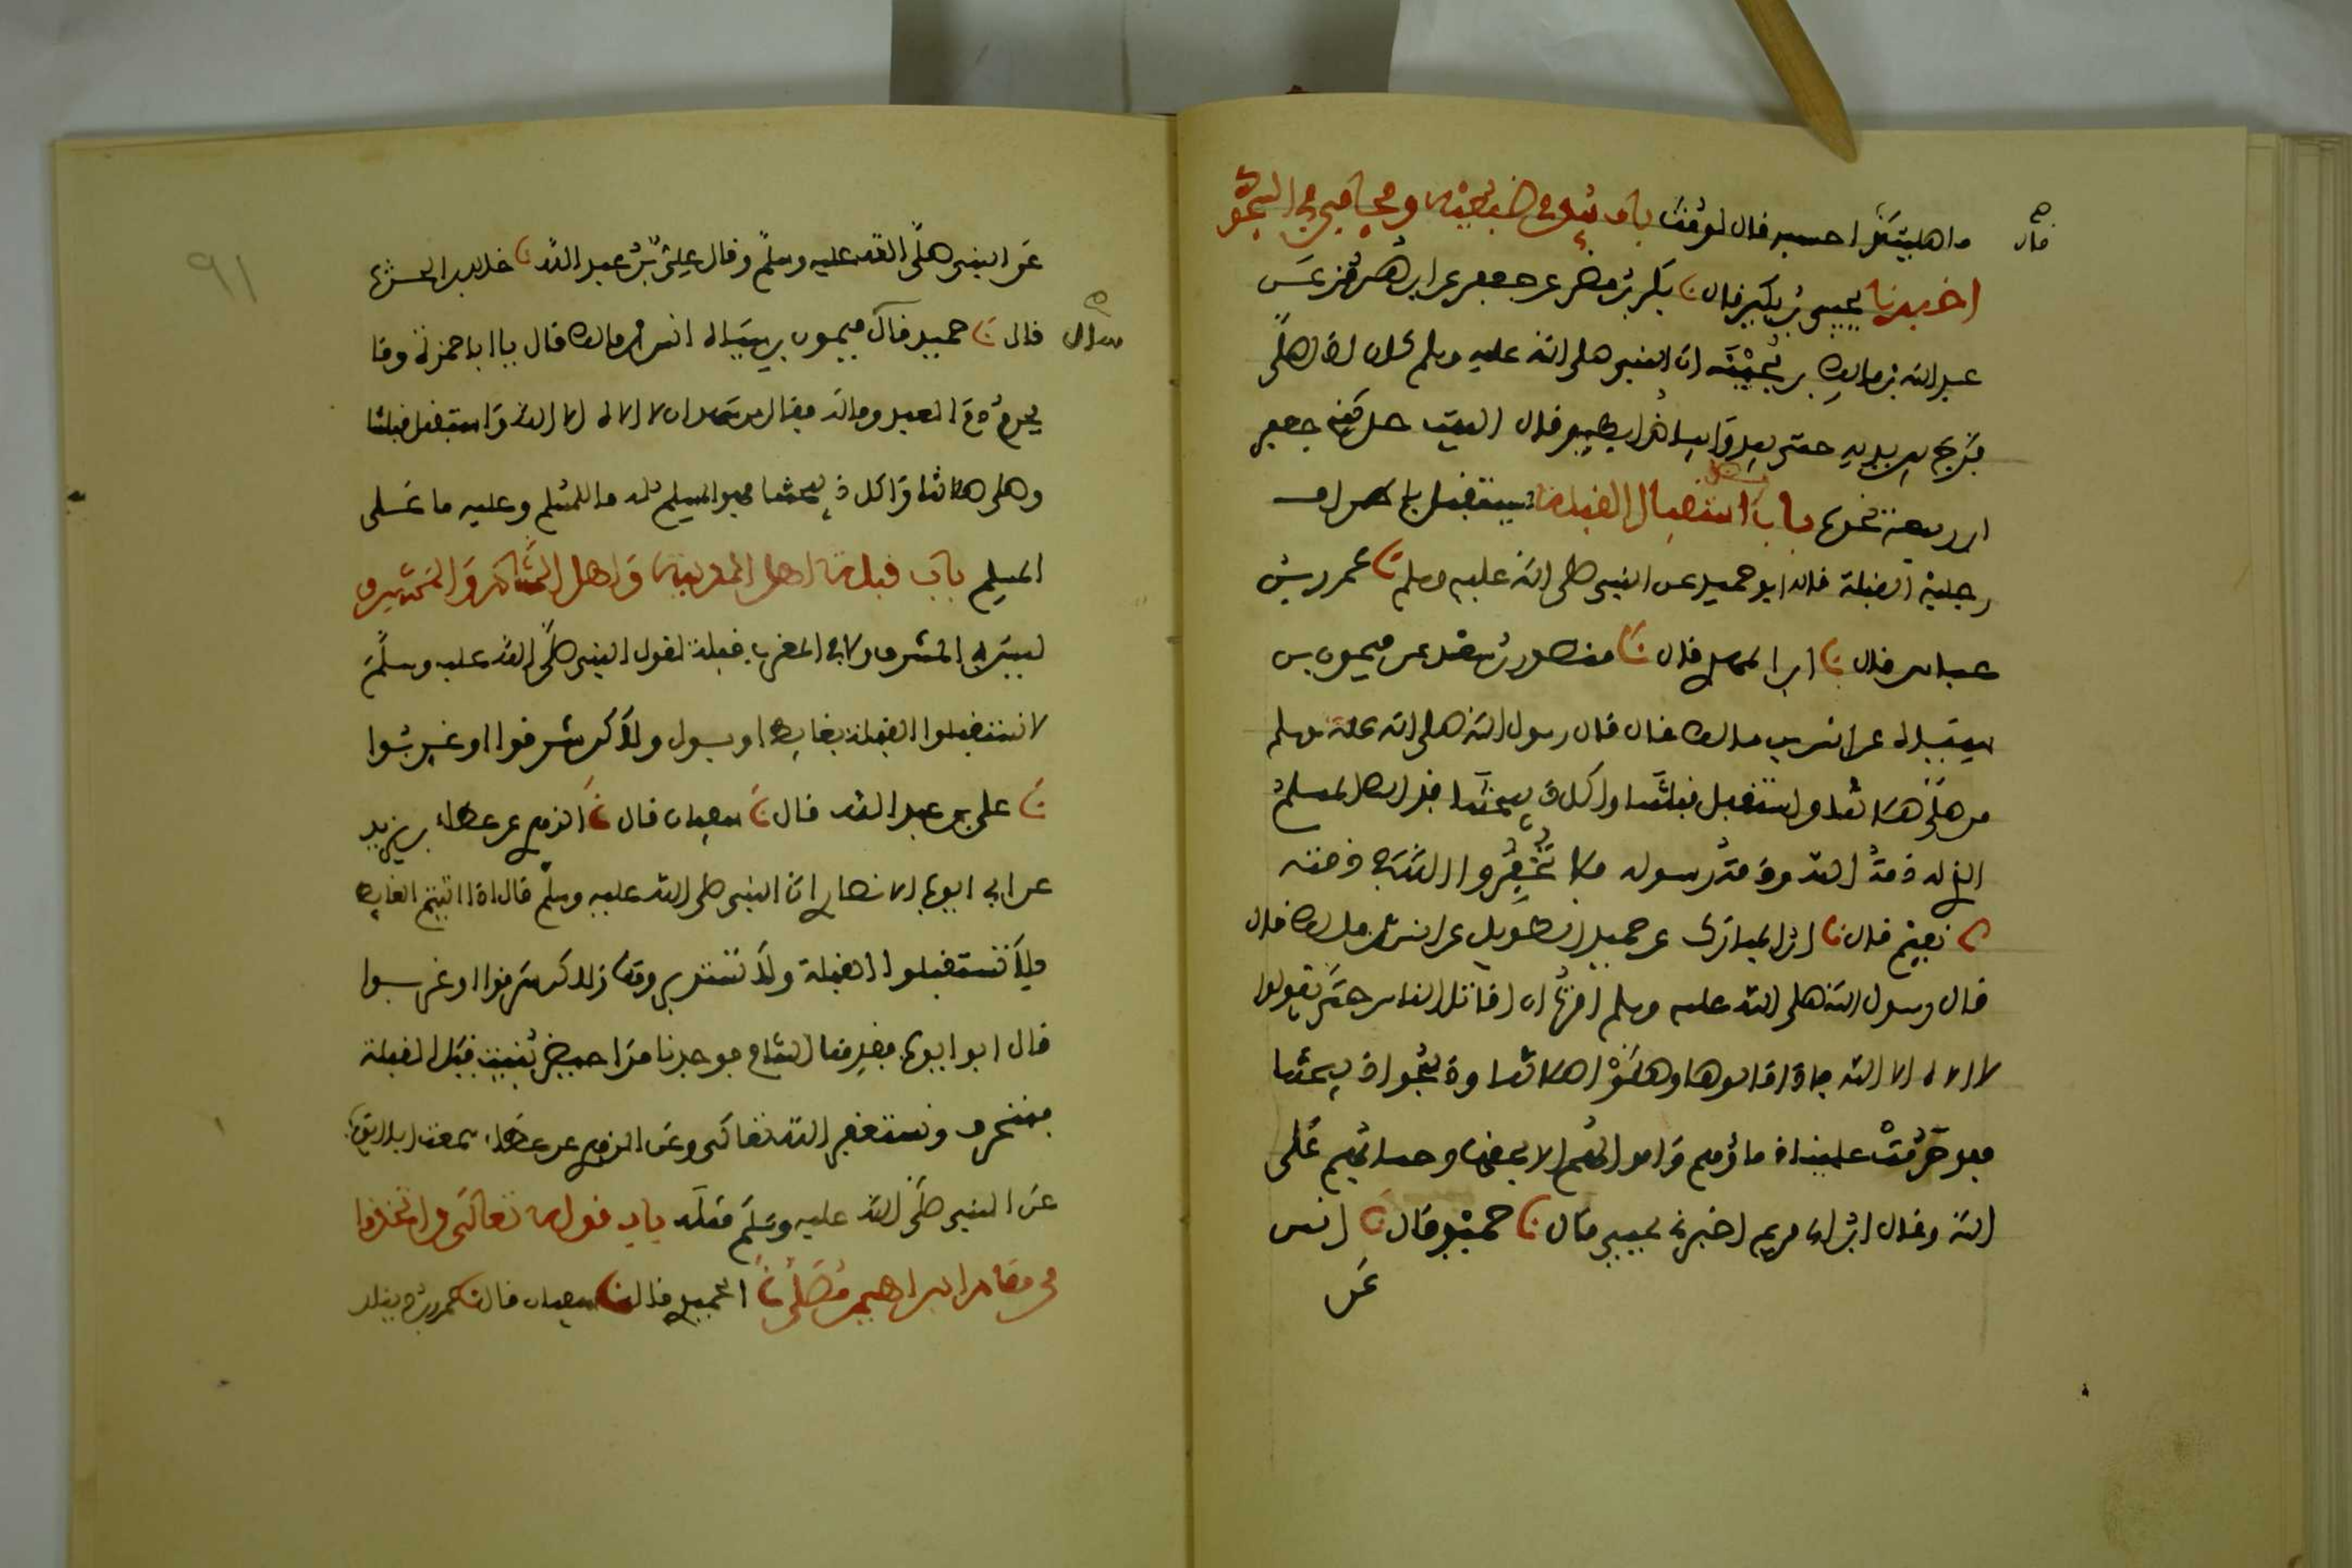 ما صليت قال احسبه قال لو مت باب يبدي ضبعيه ويجافي في السجود
قال
اخبرنا يحيى بن بكير قال نا بكر بن مضر عن جعفر عن ابن هرمز عن
عبد الله بن مالك بن بحينة ان النبي صلى الله عليه وسلم كان اذا صلى
فرج بين يديه حتى يبدو ابطيه وقال الليث حدثني جعفر
ابن ربيعة نحوه باب فضل استقبال القبلة يستقبل باطراف
رجليه القبلة قاله ابو حميد عن النبي صلى الله عليه وسلم نا عمرو بن
عباس قال نا ابن المهدي قال نا منصور بن سعد عن ميمون بن
سياه عن انس بن مالك قال قال رسول الله صلى الله عليه وسلم
من صلى صلاتنا واستقبل قبلتنا واكل ذبيحتنا فذلك المسلم
الذي له ذمة الله وذمة رسوله فلا تخفروا الله في ذمته
نا نعيم قال نا ابن المبارك عن حميد الطويل عن انس بن مالك قال
قال رسول الله صلى الله عليه وسلم امرت ان اقاتل الناس حتى يقولوا
لا اله الا الله فاذا قالوها وصلوا صلاتنا وذبحوا ذبيحتنا
فقد حرمت علينا دماؤهم واموالهم الا بحقها وحسابهم على
الله وقال ابن ابي مريم اخبرني يحيى قال نا حميد قال نا انس
عن
٩١
عن النبي صلى الله عليه وسلم وقال علي بن عبد الله نا خالد بن الحرث
قال نا حميد قال ميمون بن سياه انس بن مالك قال يا ابا حمزة وما
سأل
يحرم دم العبد وماله فقال من شهد ان لا اله الا الله واستقبل قبلتنا
وصلى صلاتنا واكل ذبيحتنا فهو المسلم له ما للمسلم وعليه ما على
المسلم باب قبلة اهل المدينة واهل الشام والمشرق
ليس في المشرق ولا في المغرب قبلة لقول النبي صلى الله عليه وسلم
لا تستقبلوا القبلة بغائط او بول ولكن شرقوا او غربوا
نا علي بن عبد الله قال نا سفيان قال نا الزهري عن عطاء بن يزيد
عن ابي ايوب الانصاري ان النبي صلى الله عليه وسلم قال اذا اتيتم الغائط
فلا تستقبلوا القبلة ولا تستدبروها ولكن شرقوا او غربوا
قال ابو ايوب فقدمنا الشام فوجدنا مراحيض بنيت قبل القبلة
فننحرف ونستغفر الله تعالى وعن الزهري عن عطاء سمعت ابا ايوب
عن النبي صلى الله عليه وسلم مثله باب قوله تعالى واتخذوا
من مقام ابراهيم مصلى نا الحميدي قال نا سفيان قال نا عمرو بن دينار